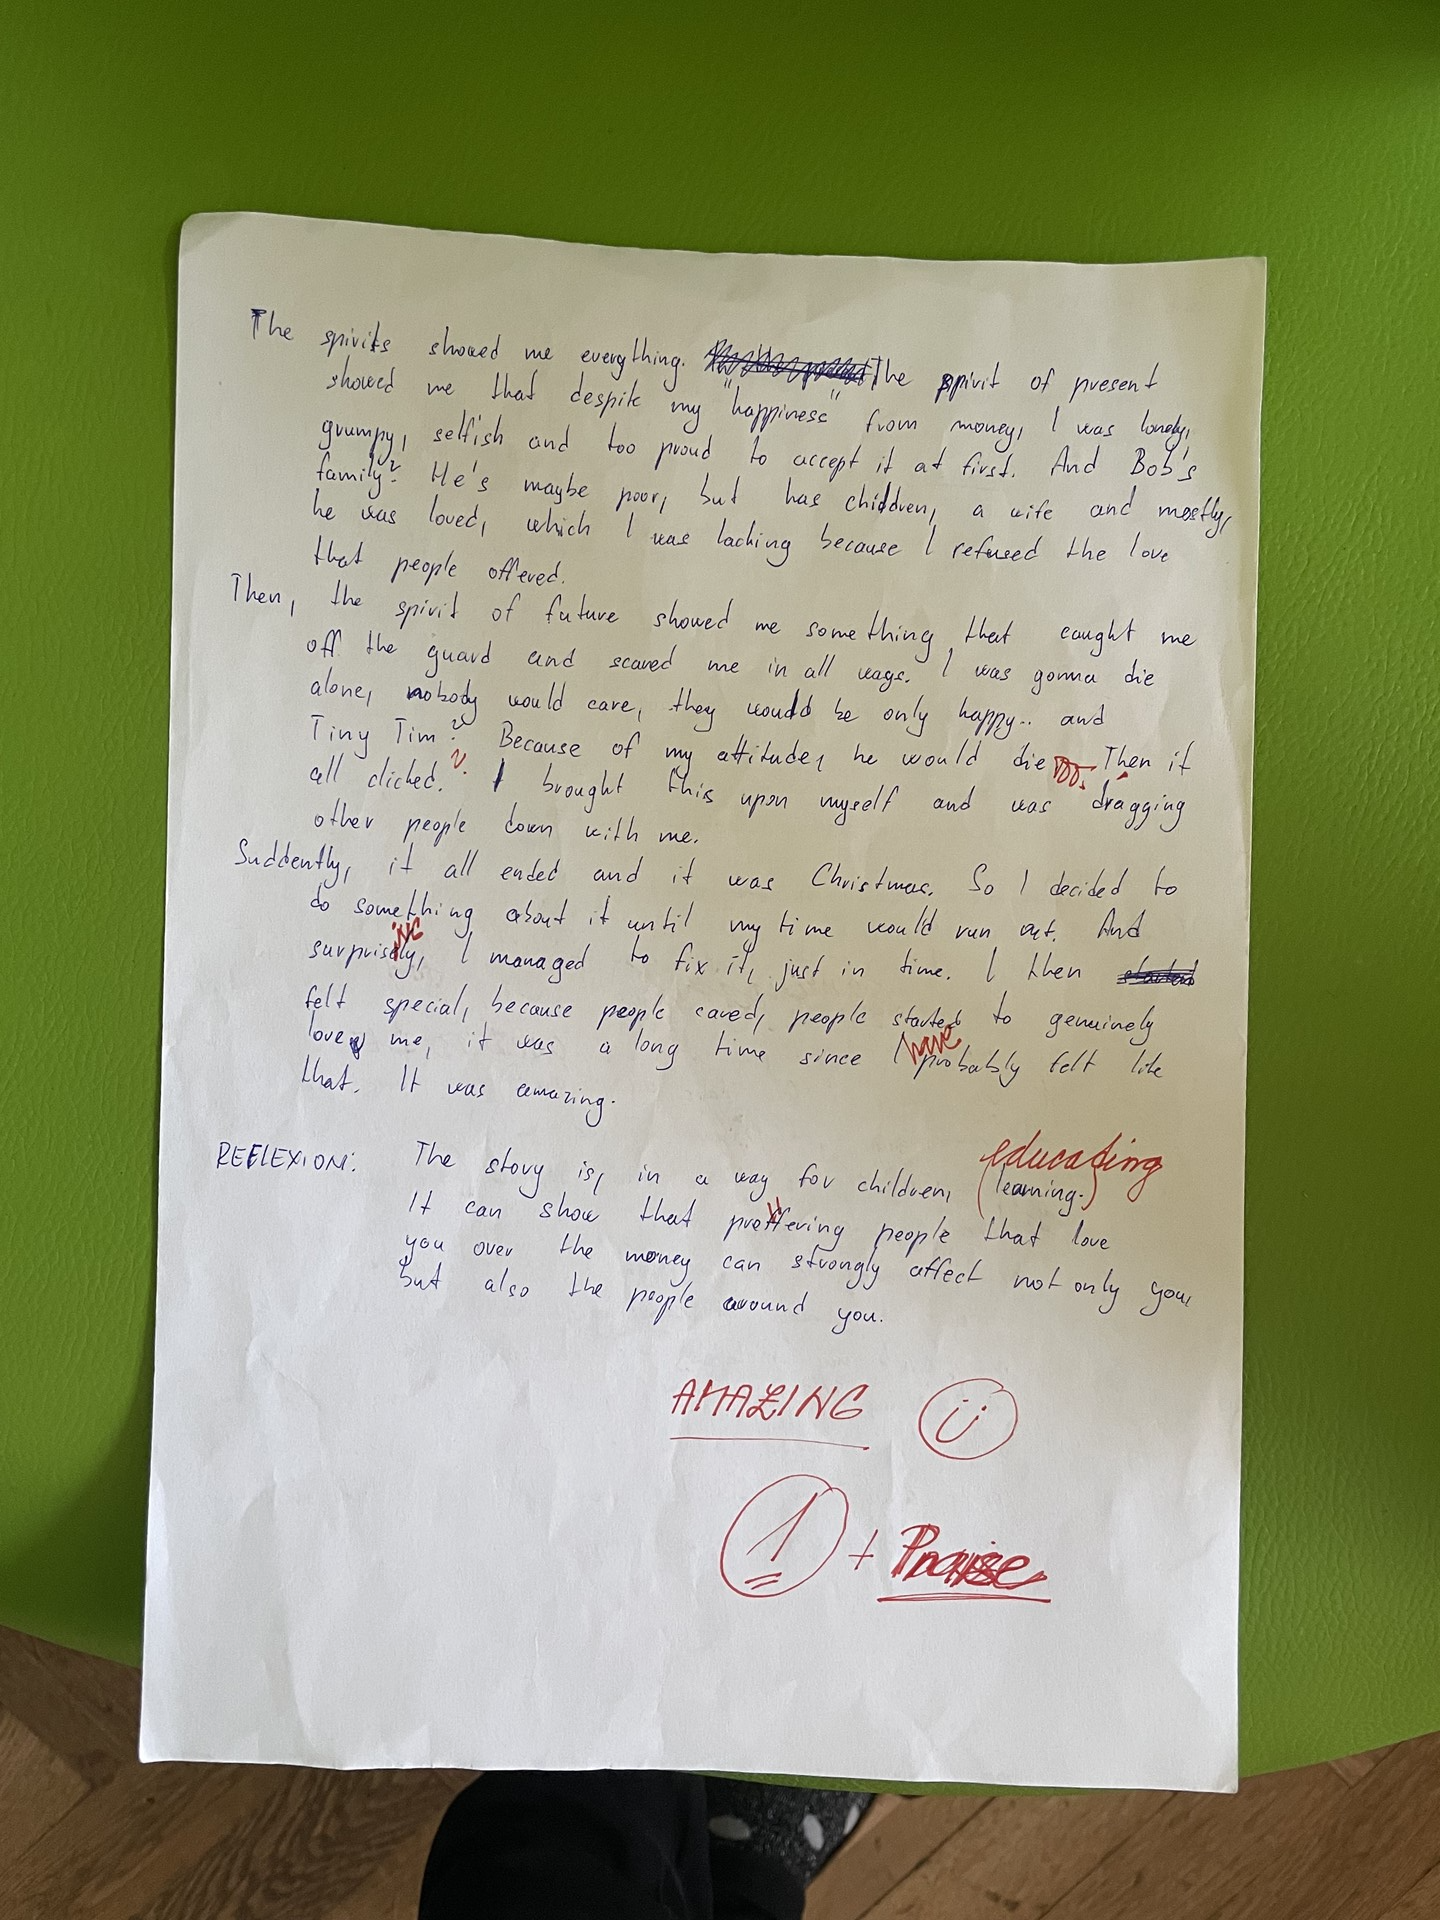 The spirits showed me everything. The spirit of present
showed me that despite my "happiness" from money, I was lonely,
grumpy, selfish and too proud to accept it at first. And Bob's
family? He's maybe poor, but has children, a wife and mostly,
he was loved, which I was lacking because I refused the love
that people offered.
Then, the spirit of future showed me something that caught me
off the guard and scared me in all ways. I was gonna die
alone, nobody would care, they would be only happy.. and
Tiny Tim? Because of my attitude, he would die Then it
all clicked. ? I brought this upon myself and was dragging
other people down with me.
Suddently, it all ended and it was Christmas. So I decided to
do something about it until my time would run out. And
surprisely, I managed to fix it, just in time. I then
felt special, because people cared, people started to genuinely
love me, it was a long time since I have probably felt like
that. It was amazing.
REFLEXION: The story is, in a way for children, (learning.) educating
It can show that preffering people that love
you over the money can strongly affect not only you,
but also the people around you.
AMAZING
1 + Praise